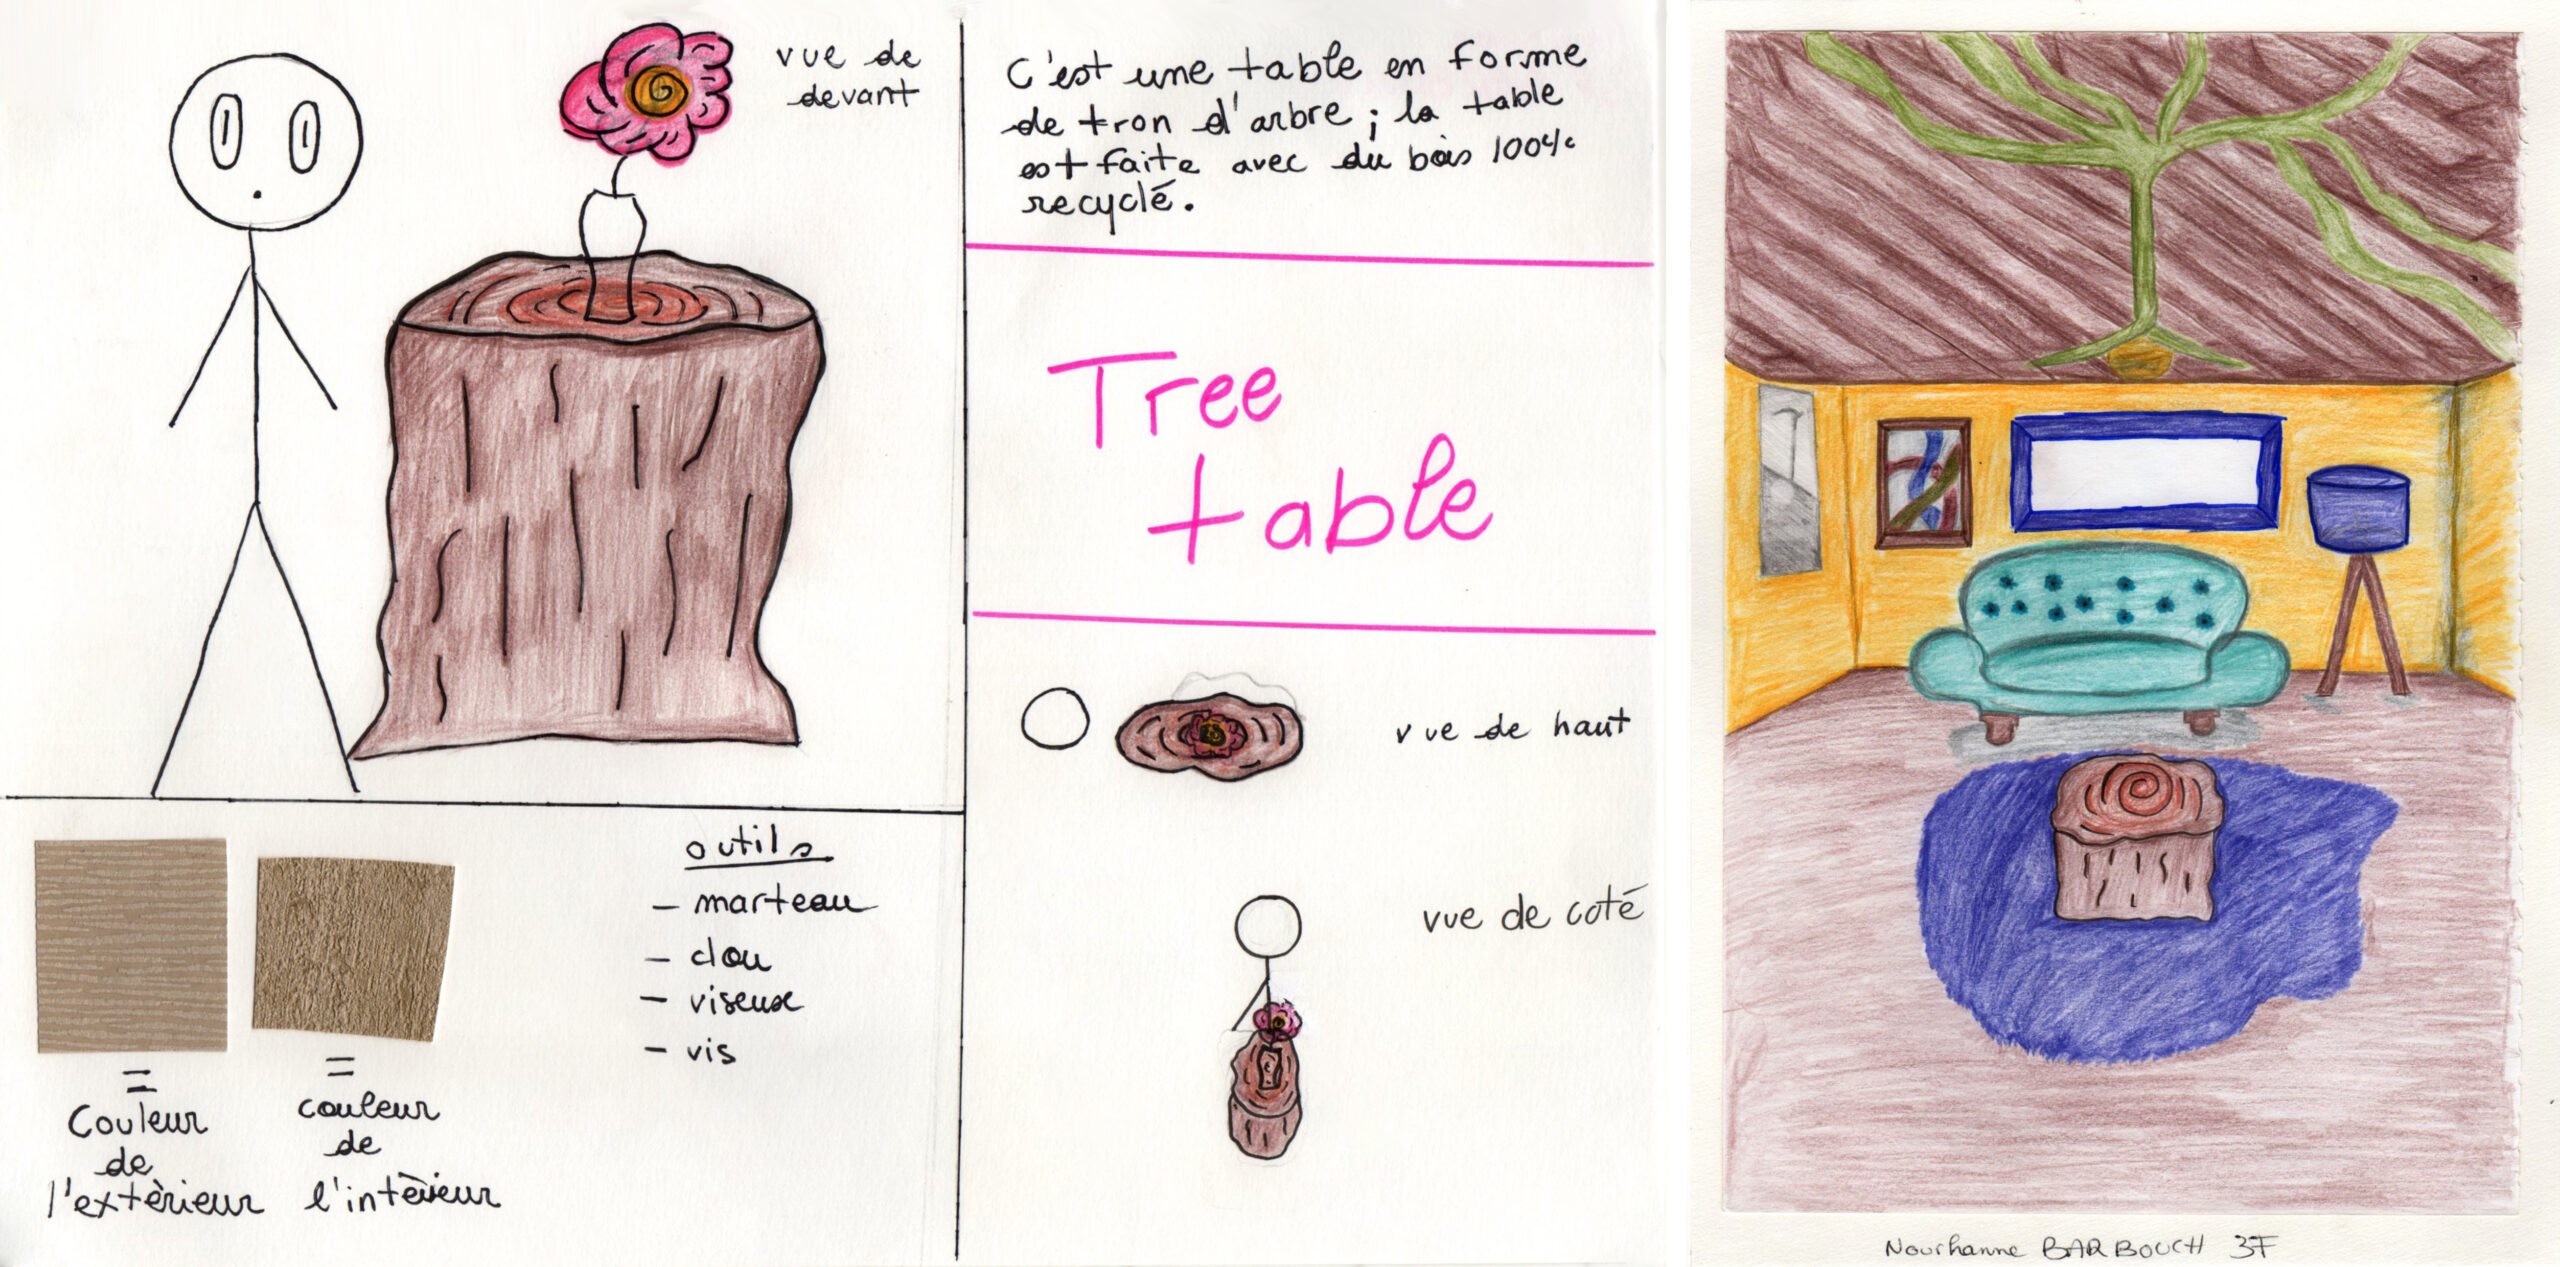 vue de
devant
C'est une table en forme
de tron d'arbre ; la table
est faite avec du bois 100%
recyclé.
Tree
table
vue de haut
vue de coté
outils
- marteau
- clou
- viseuse
- vis
=
Couleur
de
l'extèrieur
=
couleur
de
l'intèrieur
Nourhanne BARBOUCH 3F